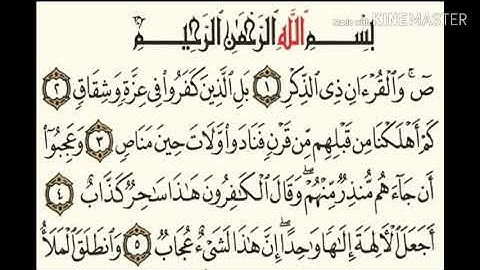 Made with KINEMASTER
بِسْمِ ٱللَّهِ ٱلرَّحْمَٰنِ ٱلرَّحِيمِ
صٓ ۚ وَٱلْقُرْءَانِ ذِى ٱلذِّكْرِ ١ بَلِ ٱلَّذِينَ كَفَرُوا۟ فِى عِزَّةٍ وَشِقَاقٍ ٢
كَمْ أَهْلَكْنَا مِن قَبْلِهِم مِّن قَرْنٍ فَنَادَوا۟ وَّلَاتَ حِينَ مَنَاصٍ ٣ وَعَجِبُوٓا۟
أَن جَآءَهُم مُّنذِرٌ مِّنْهُمْ ۖ وَقَالَ ٱلْكَٰفِرُونَ هَٰذَا سَٰحِرٌ كَذَّابٌ ٤
أَجَعَلَ ٱلْـَٔالِهَةَ إِلَٰهًا وَٰحِدًا ۖ إِنَّ هَٰذَا لَشَىْءٌ عُجَابٌ ٥ وَٱنطَلَقَ ٱلْمَلَأُ